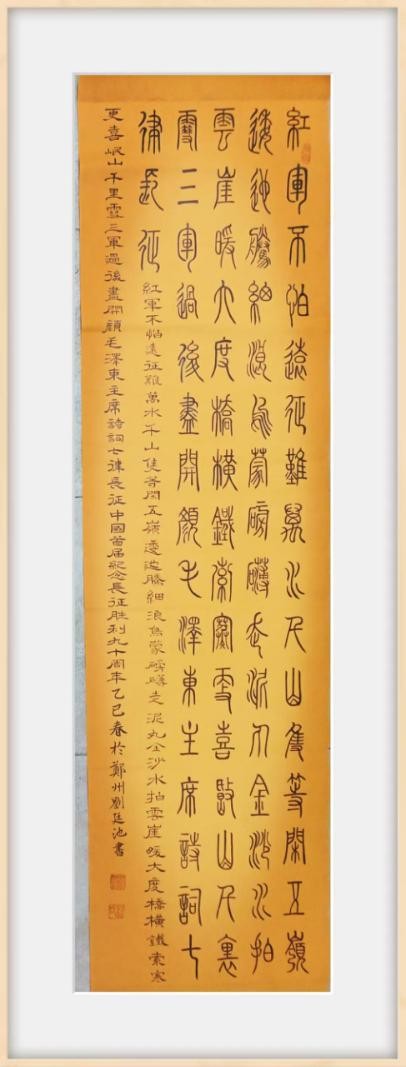 紅軍不怕遠征難萬水千山隻等閑五嶺
逶迤騰細浪烏蒙磅礴走泥丸金沙水拍
雲崖暖大度橋橫鐵索寒更喜岷山千裏
雪三軍過後盡開顏毛澤東主席詩詞七
律長征
紅軍不怕遠征難萬水千山隻等閑五嶺逶迤騰細浪烏蒙磅礴走泥丸金沙水拍雲崖暖大度橋橫鐵索寒
更喜岷山千里雪三軍過後盡開顏毛澤東主席詩詞七律長征中國首届紀念長征胜利九十周年乙巳春於鄭州劉廷池書